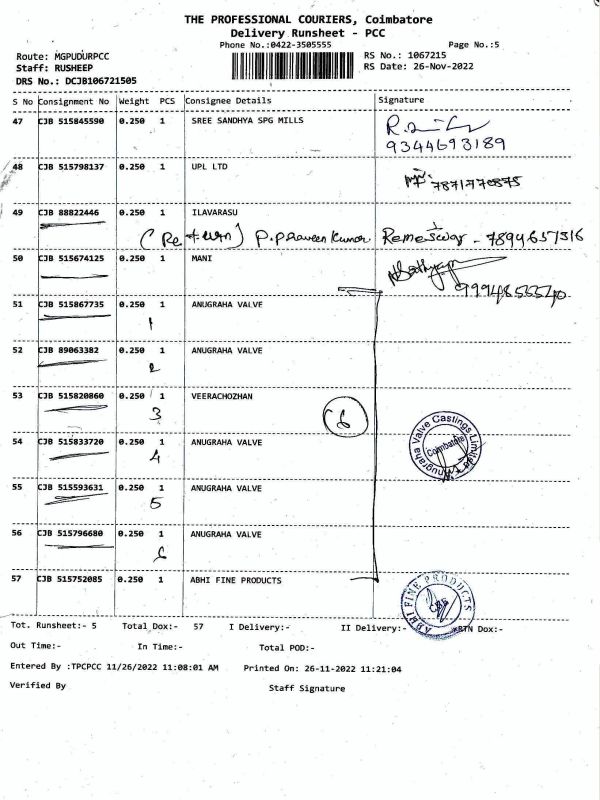 THE PROFESSIONAL COURIERS, Coimbatore
Delivery Runsheet - PCC
Phone No.:0422-3505555 Page No.:5
Route: MGPUDURPCC RS No.: 1067215
Staff: RUSHEEP RS Date: 26-Nov-2022
DRS No.: DCJB106721505
S No Consignment No Weight PCS Consignee Details Signature
47 CJB 515845590 0.250 1 SREE SANDHYA SPG MILLS
9344693189
48 CJB 515798137 0.250 1 UPL LTD
7871770875
49 CJB 88822446 0.250 1 ILAVARASU
(Return) P.Praveen Kumar Rameswar - 7894657316
50 CJB 515674125 0.250 1 MANI
51 CJB 515867735 0.250 1 ANUGRAHA VALVE
1
52 CJB 89063382 0.250 1 ANUGRAHA VALVE
2
53 CJB 515820860 0.250 1 VEERACHOZHAN
3 6
54 CJB 515833720 0.250 1 ANUGRAHA VALVE
4
Anugraha Valve Castings Limited
Coimbatore
55 CJB 515593631 0.250 1 ANUGRAHA VALVE
5
56 CJB 515796680 0.250 1 ANUGRAHA VALVE
6
57 CJB 515752085 0.250 1 ABHI FINE PRODUCTS
ABHI FINE PRODUCTS
CBE
Tot. Runsheet:- 5 Total Dox:- 57 I Delivery:- II Delivery:- RTN Dox:-
Out Time:- In Time:- Total POD:-
Entered By :TPCPCC 11/26/2022 11:08:01 AM Printed On: 26-11-2022 11:21:04
Verified By Staff Signature